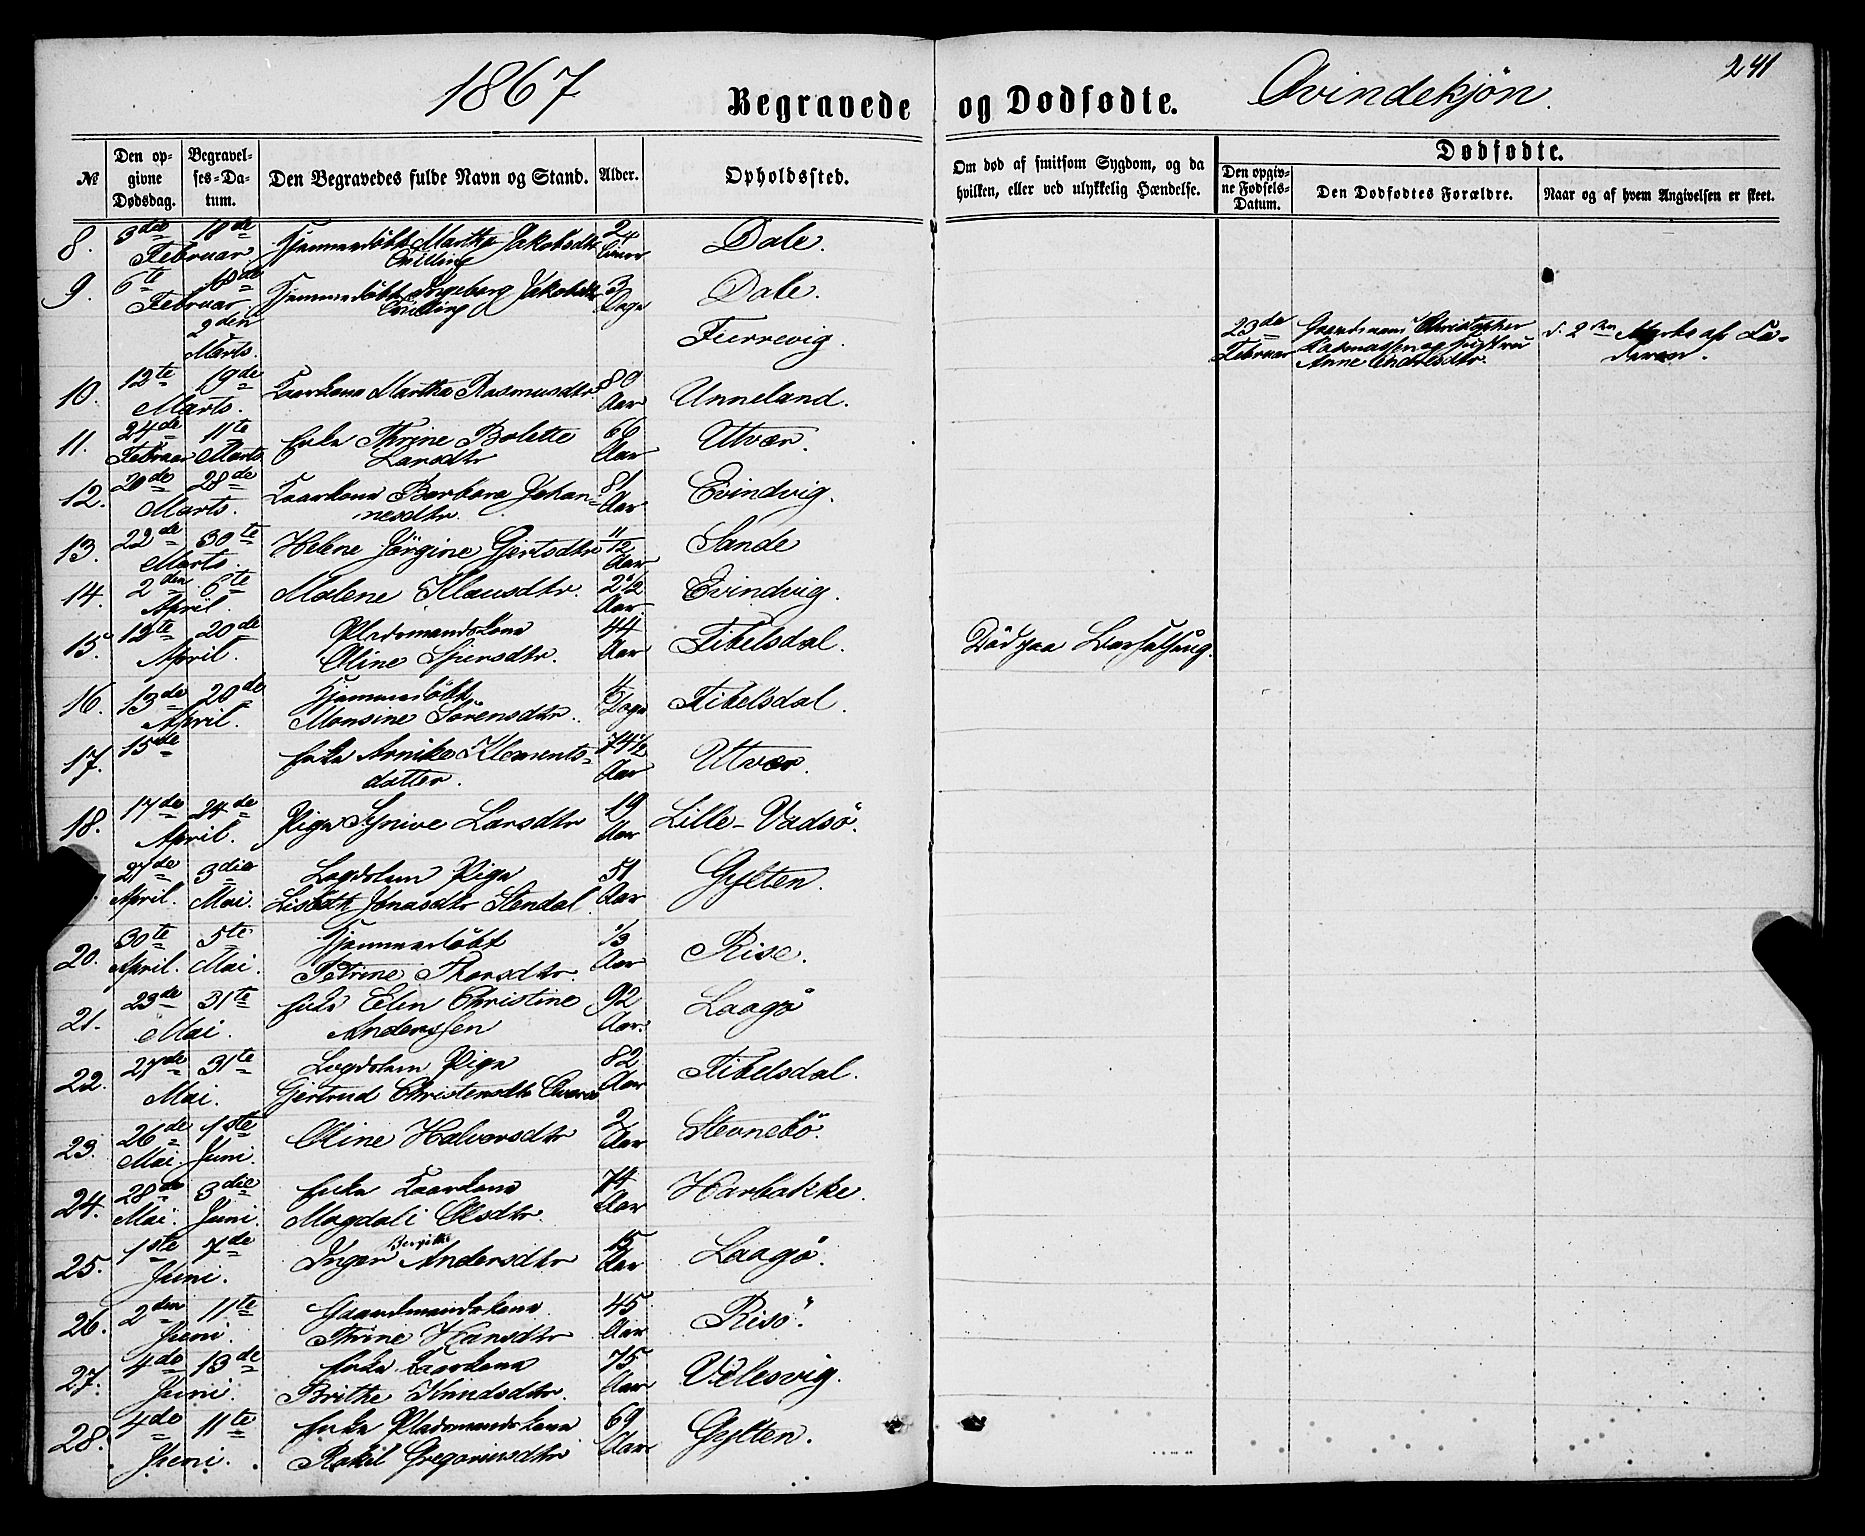 1867
Begravede og Dødfødte.
Qvindekjøn.
241
№
Den opgivne Dødsdag.
Begravelses-Datum.
Den Begravedes fulde Navn og Stand.
Alder.
Opholdssted.
Om død af smitsom Sygdom, og da hvilken, eller ved ulykkelig Hændelse.
Dødfødte.
Den opgivne Fødsels-Datum.
Den Dødfødtes Forældre.
Naar og af hvem Angivelsen er skeet.
8. 3die 10de Februar Hjemmedöbt Martha Jakobsdtr Tvilling 24 Timer Dale.
9. 6te 10de Februar. Hjemmedöbt Ingeborg Jakobsdtr Tvilling 3 Dage Dale.
2den Marts. Furrevig. 23de Februar Gaardmand Christopher Rasmussen og Hustru Anne Andresdtr. d. 2den Marts af Faderen.
10. 12te 19de Marts. Kaarkone Martha Rasmusdtr. 80 Aar Unneland.
11. 24de Februar 11te Marts Enke Thrine Bolette Larsdtr 66 Aar Utvær.
12. 20de 28de Marts. Kaarkone Barbara Johannesdtr. 81 Aar Evindvig.
13. 22de 30te Marts. Helene Jörgine Gjertsdtr 11/12 Aar Sande
14. 2den 6te April. Malene Klausdtr. 2 1/2 Aar Evindvig.
15. 12te 20de April. Pladsmandskone Oline Sjursdtr. 44 Aar Tibelsdal. Död paa Barselseng.
16. 13de 20de April. Hjemmedöbt Monsine Sörensdtr. Dage Tibelsdal.
17. 15de Enke Annike Klementsdatter. 74 1/2 Aar Utvær.
18. 17de 24de April. Pige Synive Larsdtr 19 Aar Lille-Vadsö.
27de April. 3die Mai. Lægdslem Pige Lisbeth Jonasdtr Stendal 51 Aar Gylten.
20. 30te April. 5te Mai. Hjemmedöbt Petrine Thorsdtr. 1/3 Aar Rise.
21. 23de 31te Mai. Enke Elen Christine Anderssen 92 Aar. Laagö
22. 27de 31te Mai. Lægdslem Pige Gjertrud Christensdtr 82 Aar Tibelsdal.
23. 26de Mai. 1ste Juni. Oline Halvorsdtr 2 Aar Stevnebö.
24. 28de Mai. 3die Juni. Enke Kaarkone Magdali Olsdtr. 74 Aar Harbakke.
25. 1ste 7de Juni. Inger Bergitte Andersdtr 15 Aar Laagö.
26. 2den 11te Juni. Gaardmandskone Thrine Hansdtr 45 Aar Risö.
27. 4de 13de Juni. Enke Kaarkone Brithe Knudsdtr. 75 Aar Vilesvig.
28. 4de 11te Juni. Enke Pladsmandskone Rakil Gregoriusdtr 69 Aar Gylten.